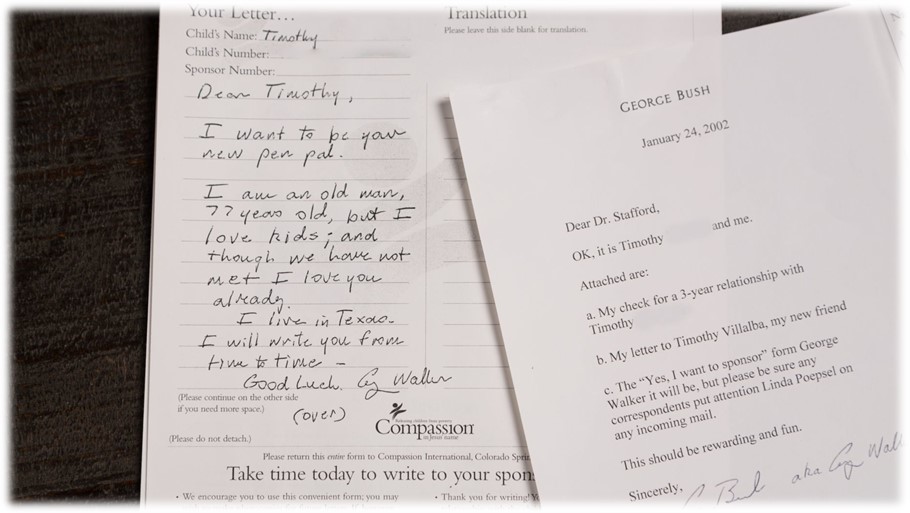 Your Letter…
Child's Name: Timothy
Child's Number:
Sponsor Number:
Dear Timothy,
I want to be your
new pen pal.
I am an old man,
77 years old, but I
love kids; and
though we have not
met I love you
already.
I live in Texas-
I will write you from
time to time –
Good Luck. G. Walker
(Please continue on the other side
if you need more space.)
(over)
(Please do not detach.)
Compassion
in Jesus' name
Please return this entire form to Compassion International, Colorado Sprin
Take time today to write to your spon
• We encourage you to use this convenient form; you may
• Thank you for writing!
Translation
Please leave this side blank for translation.
GEORGE BUSH
January 24, 2002
Dear Dr. Stafford,
OK, it is Timothy and me.
Attached are:
a. My check for a 3-year relationship with
Timothy
b. My letter to Timothy Villalba, my new friend
c. The "Yes, I want to sponsor" form George
Walker it will be, but please be sure any
correspondents put attention Linda Poepsel on
any incoming mail.
This should be rewarding and fun.
Sincerely,
G Bush aka G. Wal